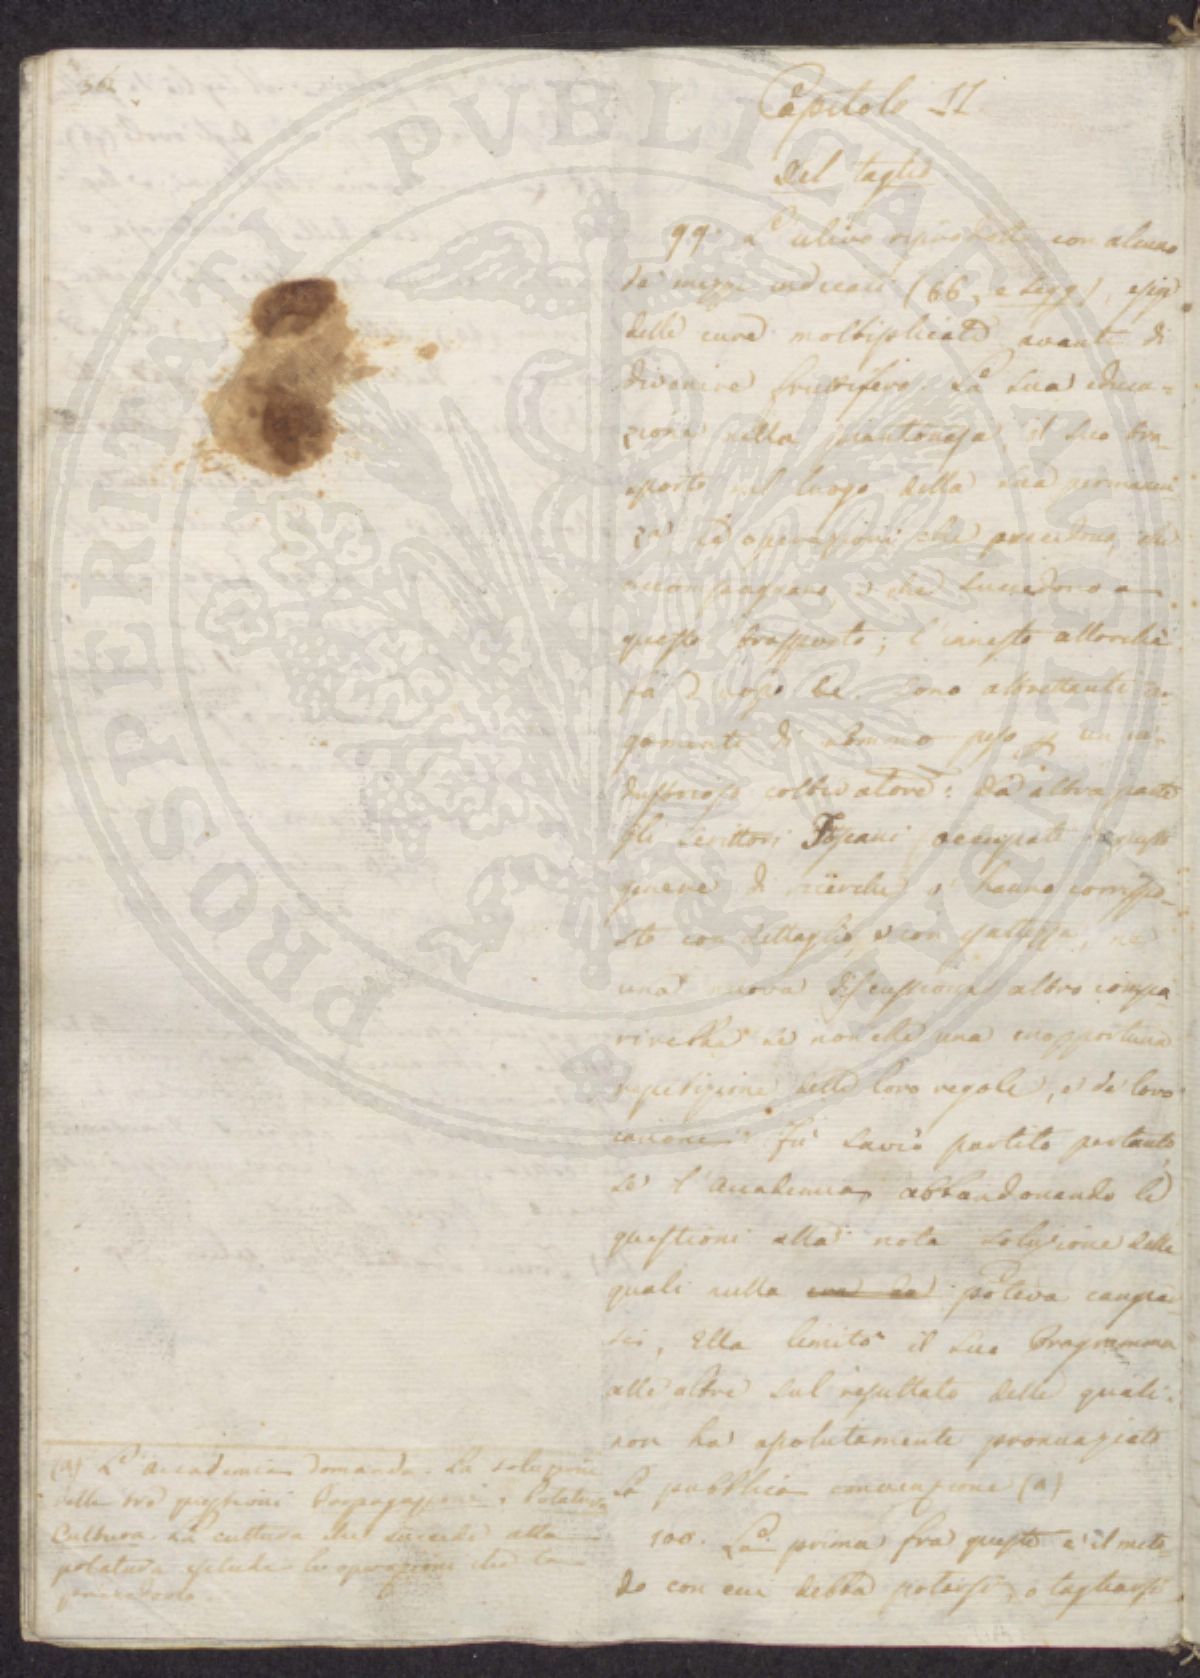 Capitolo II
Del taglio
99. L'ulivo riprodotto con alcuno
de' mezzi indicati (66, e segg), esige
delle cure moltiplicate avanti di
divenire fruttifero. La sua educa-
zione nella piantonaja il suo tra-
sporto nel luogo della sua permanen
za Le operazioni che precedono, che
accompagnano, e che succedono a
questo trasporto; l'innesto allorchè
fa d'uopo &c. sono altrettanti ar-
gomenti di sommo peso p un in-
dustrioso coltivatore: Da altra parte
gli scrittori Toscani occupati in questo
genere di ricerche vi hanno corrispo-
sto con dettaglio, e con esattezza, ne
una nuova discussione altro compa-
rirebbe se non che una inopportuna
repetizione delle loro regole, e de' loro
canoni. Fù savio partito pertanto,
se l'Accademia abbandonando le
questioni alla nota soluzione delle
quali nulla poteva cangiar-
si, Ella limitò il suo Programma
alle altre sul resultato delle quali
non ha assolutamente pronunziato
la pubblica convenzione (a)
100. La prima fra queste è il meto-
do con cui debba potarsi, o tagliarsi
(a) L'Accademia domanda. La soluzione
delle tre questioni Propagazione, Potatura
Cultura. La cultura che succede alla
potatura esclude le operazioni che la
precedono.
PROSPERITATI PUBLICAE AUGENDAE